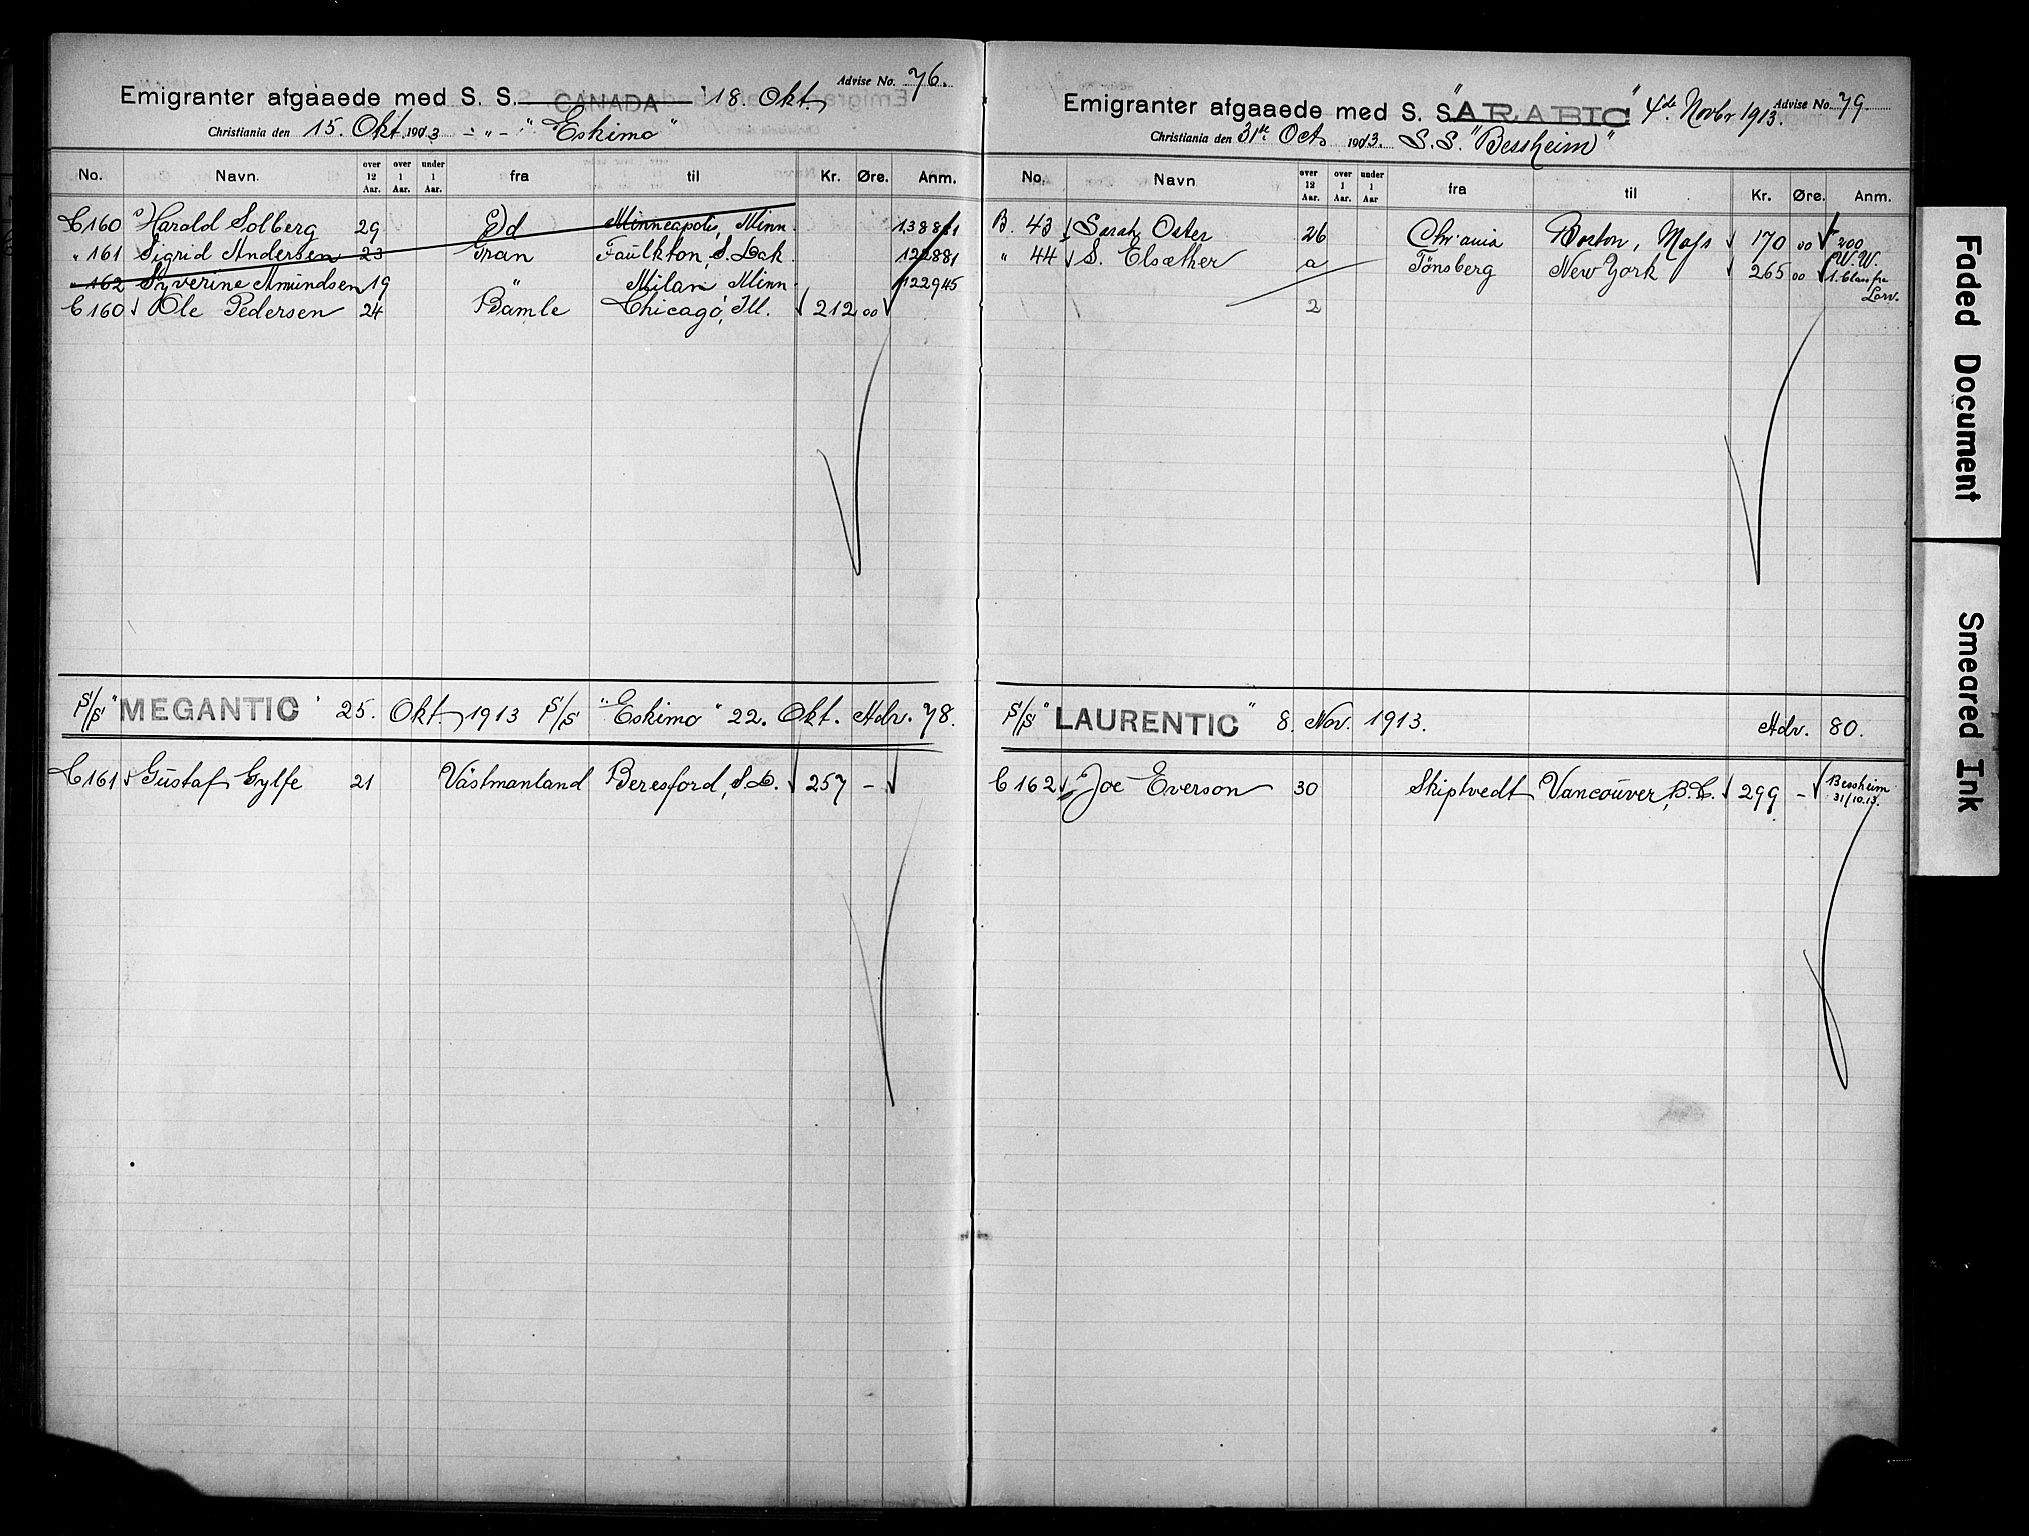 Advise No. 76.
Emigranter afgaaede med S. S. CANADA 18. Okt.
Christiania den 15. Okt. 1913 - „ - "Eskimo"
No. Navn. over 12 Aar. over 1 Aar. under 1 Aar. fra til Kr. Øre. Anm.
C 160 Harold Solberg 29 Ed Minneapolis, Minn. 138881
" 161 Sigrid Andersen 23 Gran Faulkton, S. Dak. 122881
" 162 Syverine Amundsen 19 Milan Minn. 122945
C 160 Ole Pedersen 24 Bamle Chicago, Ill. 212 00
S/S "MEGANTIC" 25. Okt. 1913 S/S "Eskimo" 22. Okt. Adv. 78.
C 161 Gustaf Gylfe 21 Västmanland Beresford, S.D. 257 -
Advise No. 79
Emigranter afgaaede med S. S. "ARABIC" 4de Novbr 1913.
Christiania den 31te Oct. 1913. S.S. "Bessheim"
No. Navn over 12 Aar. over 1 Aar. under 1 Aar fra til Kr. Øre. Anm.
B. 43 Sarah Oster 26 Chr.ania Boston, Mass 170 00 200
" 44 S. Elsæther a Tönsberg New York 265 00 W.W. 1. Class fra Larv.
2
S/S "LAURENTIC" 8. Nov. 1913. Adv. 80.
C 162 Joe Everson 30 Skiptvedt Vancouver, B.C. 299 - Bessheim 31/10.13.
Faded Document
Smeared Ink